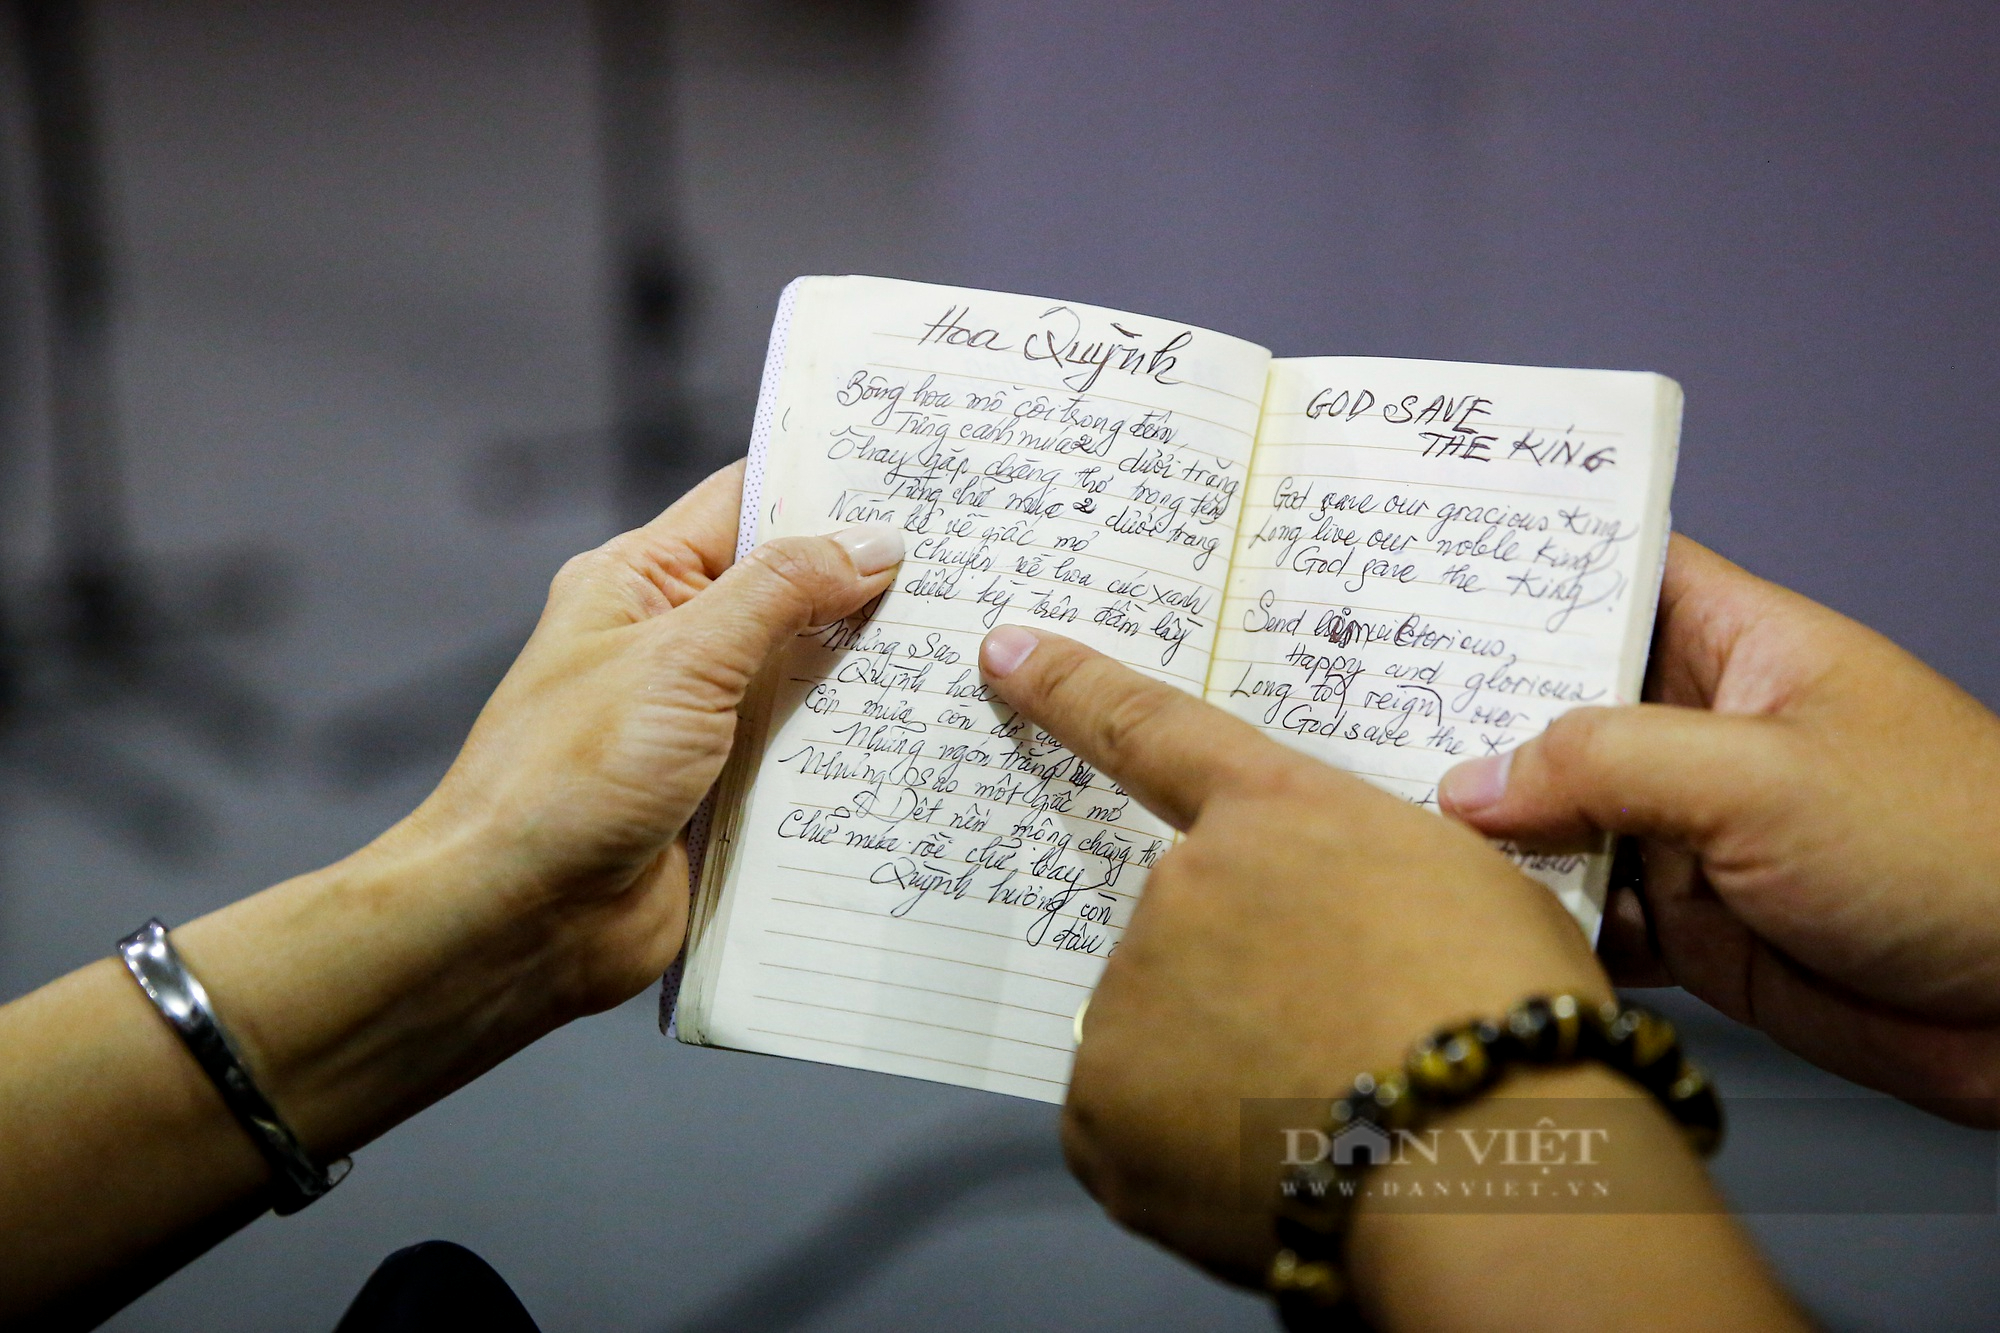 Hoa Quỳnh
Bông hoa mồ côi trong đêm,
Từng cánh múa 2 dưới trăng
Ô hay gặp chàng thơ trong đêm
Từng chữ múa 2 dưới trăng
Nàng kể về giấc mơ
Chuyện về hoa cúc xanh
diệu kỳ trên đầm lầy
Những sao
Quỳnh hoa
Cơn mưa còn dở
Những ngón trăng
Những sao một giấc mơ
Dệt nên mộng chàng
Chữ múa rồi chữ bay
Quỳnh hương còn
đâu
GOD SAVE
THE KING
God save our gracious King
Long live our noble King
God save the King!
Send him victorious,
Happy and glorious
Long to reign over
God save the
DÂN VIỆT
WWW.DANVIET.VN